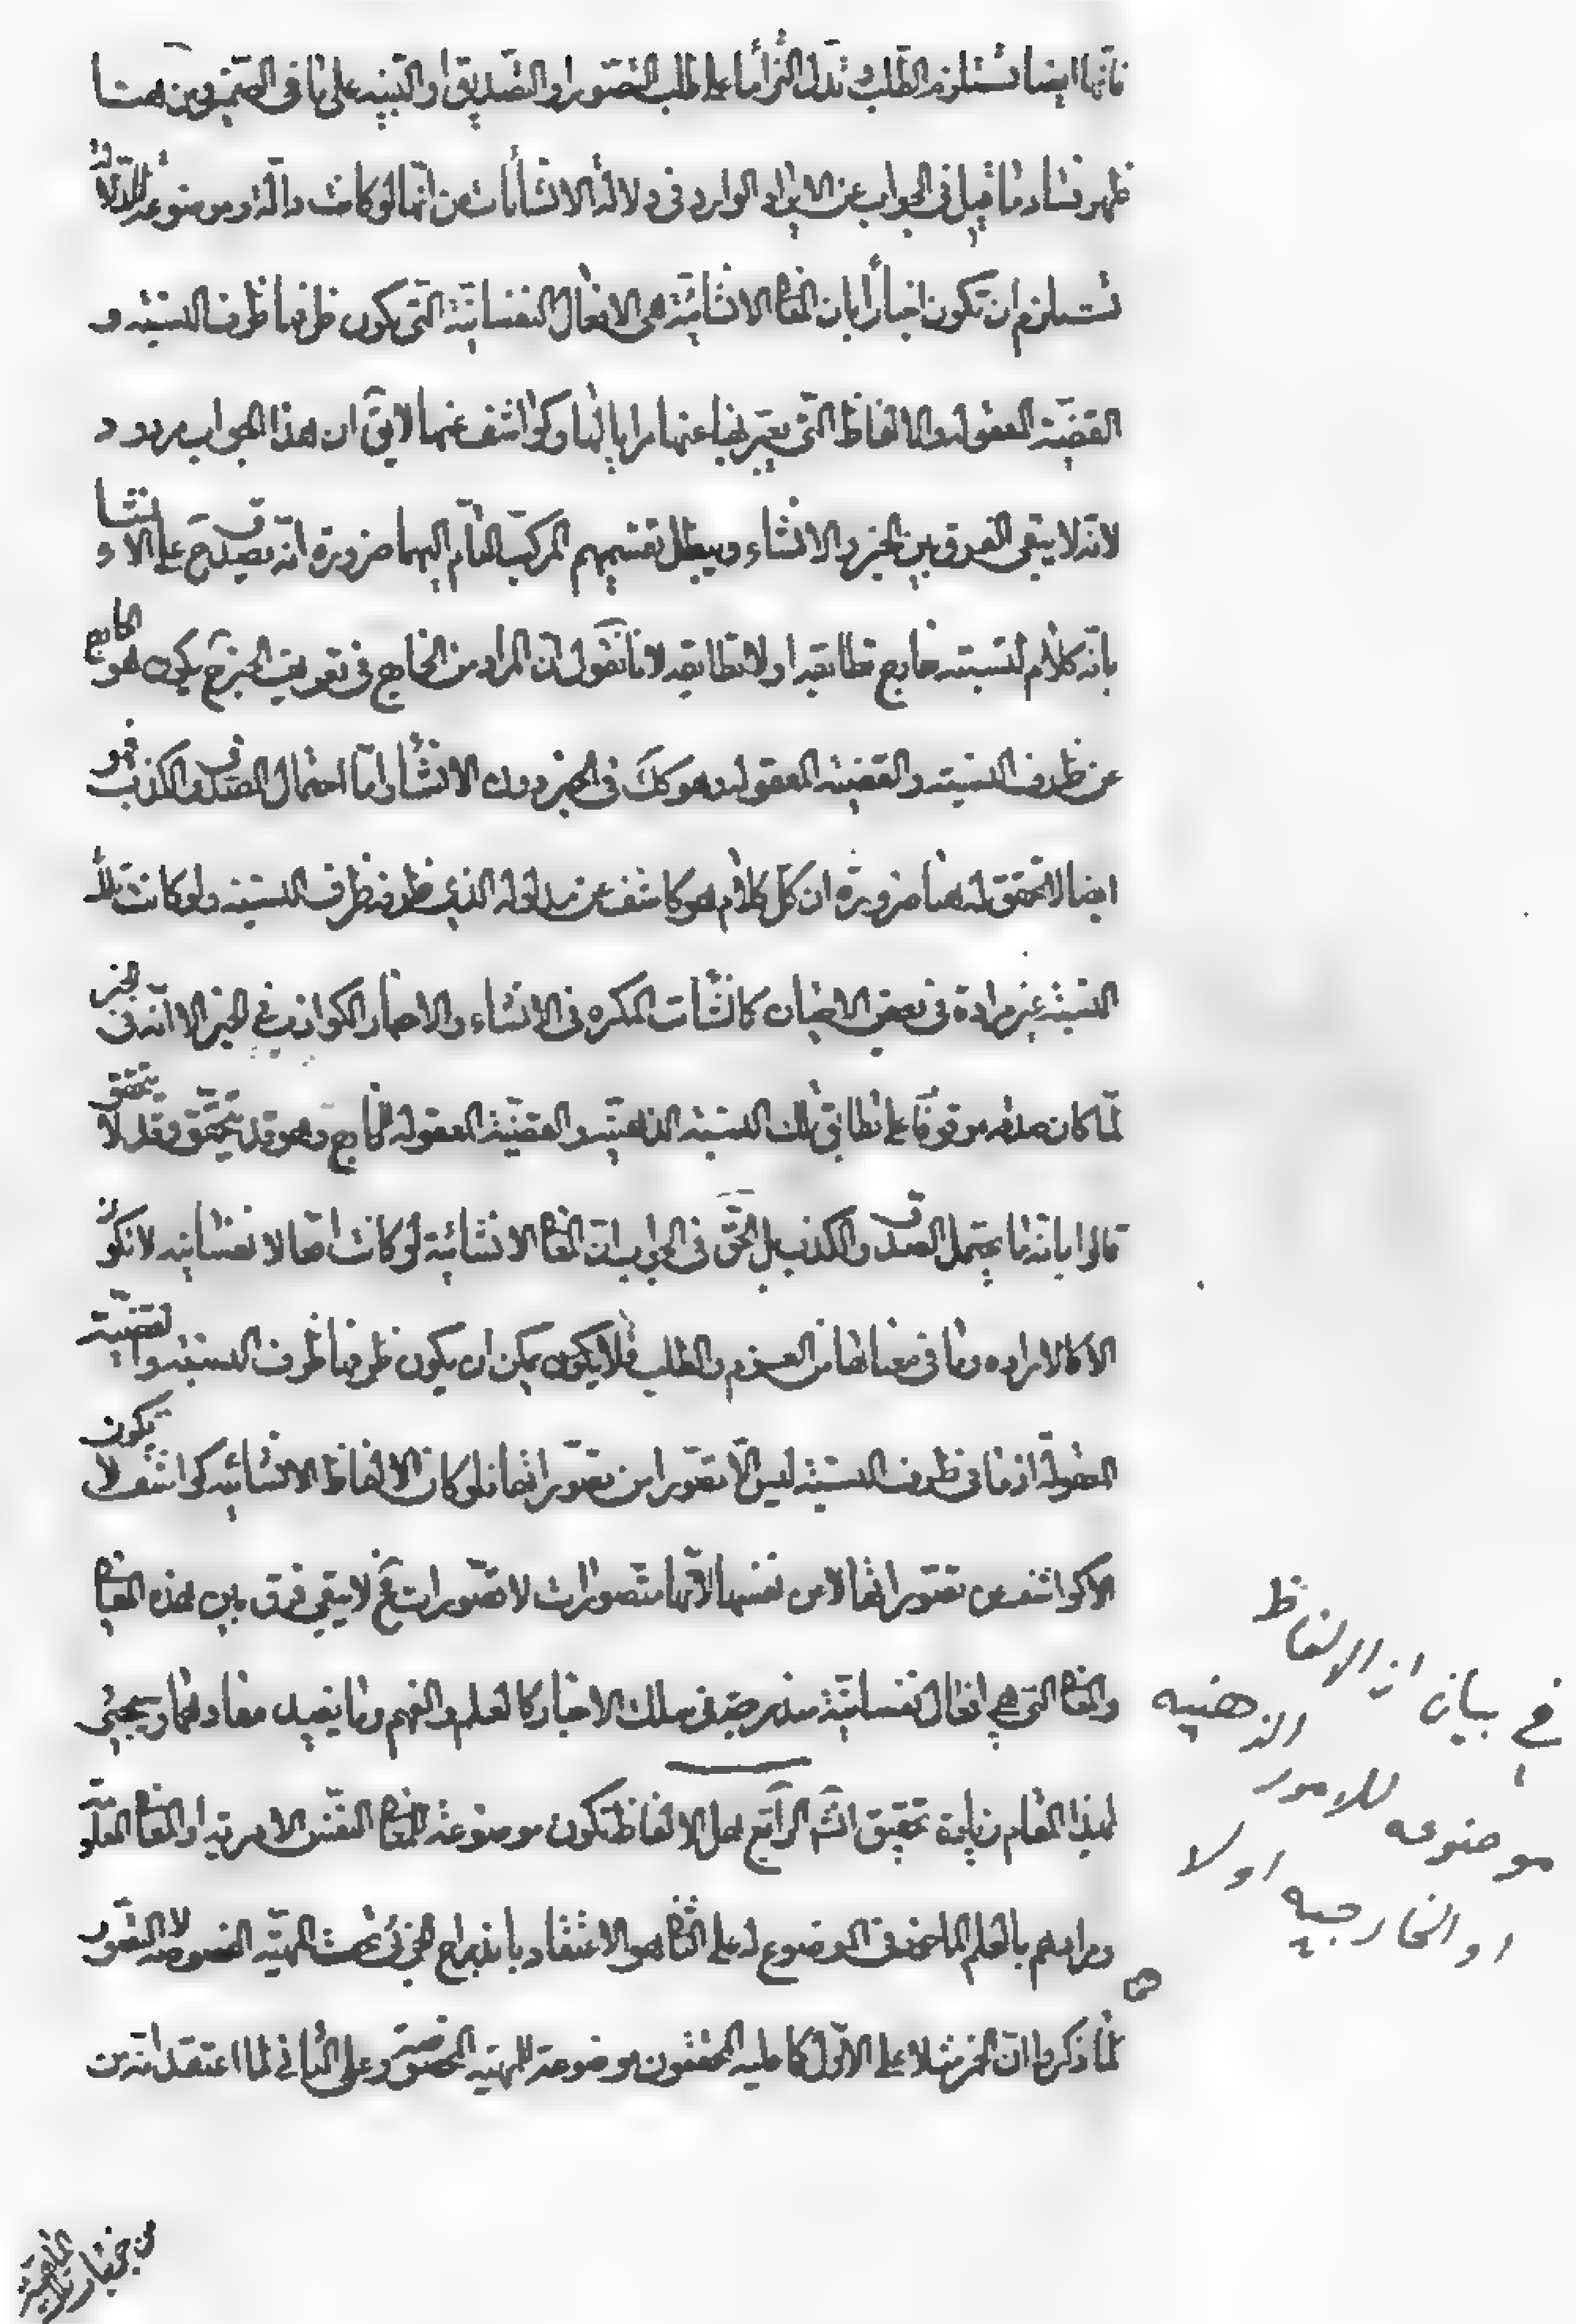 فانها ايضا تستلزم الطلب و تدل التزاما على طلب التصور او التصديق او التنبيه على ما فى الضمير و من هنا
ظهر فساد ما قيل فى الجواب عن الايراد الوارد فى دلالة الانشاءات من انها لو كانت دالة و موضوعة للدلالة
تستلزم ان تكون اخبارا بان المعا الانشائية هى الافعال النفسانية التى يكون ظرفها ظرف النسبة و
القضية المعقولة و الالفاظ التى يعبر بها عنها مرايا لها و كواشف عنها لايق ان هذا الجواب مردود
لانه لا يبقى الفرق بين الخبر و الانشاء و يبطل تقسيمهم المركب التام اليهما ضرورة انه يصدق ح على الانشاء
بانه كلام لنسبته خارج تطابقه او لا تطابقه لانا نقول ان المراد من الخارج فى تعريف الخبر ح يكون هو الخارج
عن ظرف النسبة و القضية المعقولة و هو كك فى الخبر دون الانشاء و اما احتمال الصدق و الكذب فهو
ايضا لا تحقق له هنا ضرورة ان كل كلام هو كاشف عن مدلوله الذى ظرفه ظرف النسبة و لو كانت تلك
النسبة غير مرادة فى بعض الاحيان كانشاءات المكره فى الانشاء و الاخبار الكواذب فى الخبر الا انه فى الخبر
لما كان صدقه موقوفا على تطابق تلك النسبة الذهنية و القضية المعقولة للخارج و هو قد يتحقق و قد لا يتحقق
قالوا بانه ما يحتمل الصدق و الكذب بل الحق فى الجواب ان المعا الانشائية لو كانت افعالا نفسانية لا تكون
الا كالارادة و ما فى معناها من العزم و الطلب فلا يكون يمكن ان يكون ظرفها ظرف النسبة و القضية
المعقولة اذ ما فى ظرف النسبة ليس الا تصورا من تصوراتها فلو كان الالفاظ الانشائية كواشف لا يكون
الا كواشف عن تصوراتها لا عن نفسها لانها متصورات لا تصورات فح لا يبقى فرق بين هذه المعا
و المعا التى هى افعال نفسانية مندرجة فى سلك الاخبار كالعلم و الفهم و ما يفيد مفادهما و يجيئ
لهذا المقام زيادة تحقيق انش الرابع هل الالفاظ تكون موضوعة للمعا النفس الامرية او المعا المعلومة
و مرادهم بالعلم الماخوذ فى الموضوع له على الثا هو الاعتقاد باندراج الجزئى تحت المهية المخصوصة لا التصور
لما ذكروا ان الخمر مثلا على الاول كما عليه المحققون موضوعة للمهية المخصوصة و على الثانى لما اعتقد انه من
فى بيان ان الالفاظ
موضوعه للامور الذهنيه
او الخارجيه او لا